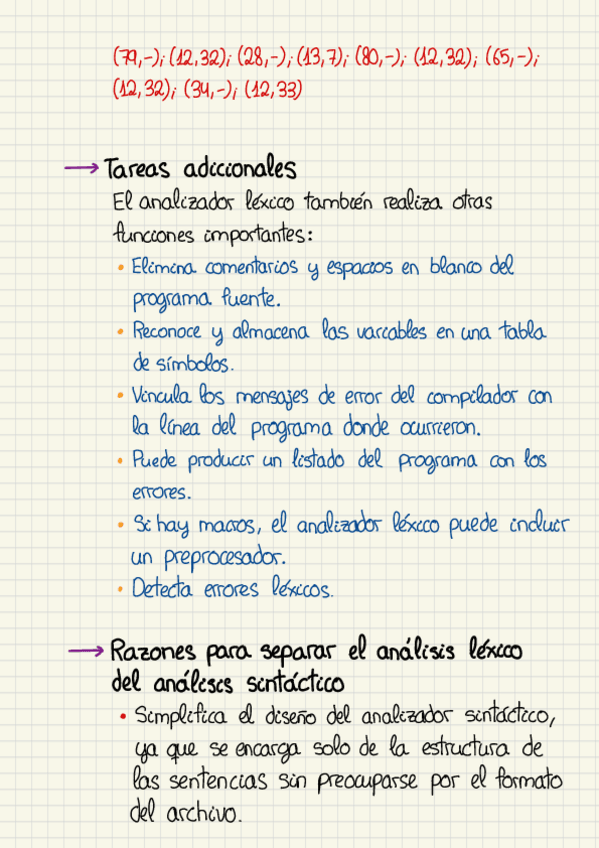 (79,-); (12,32); (28,-); (13,7); (80,-); (12,32); (65,-);
(12,32); (34,-); (12,33)
→ Tareas adicionales
El analizador léxico también realiza otras
funciones importantes:
• Elimina comentarios y espacios en blanco del
programa fuente.
• Reconoce y almacena las variables en una tabla
de símbolos.
• Vincula los mensajes de error del compilador con
la línea del programa donde ocurrieron.
• Puede producir un listado del programa con los
errores.
• Si hay macros, el analizador léxico puede incluir
un preprocesador.
• Detecta errores léxicos.
→ Razones para separar el análisis léxico
del análisis sintáctico
• Simplifica el diseño del analizador sintáctico,
ya que se encarga solo de la estructura de
las sentencias sin preocuparse por el formato
del archivo.